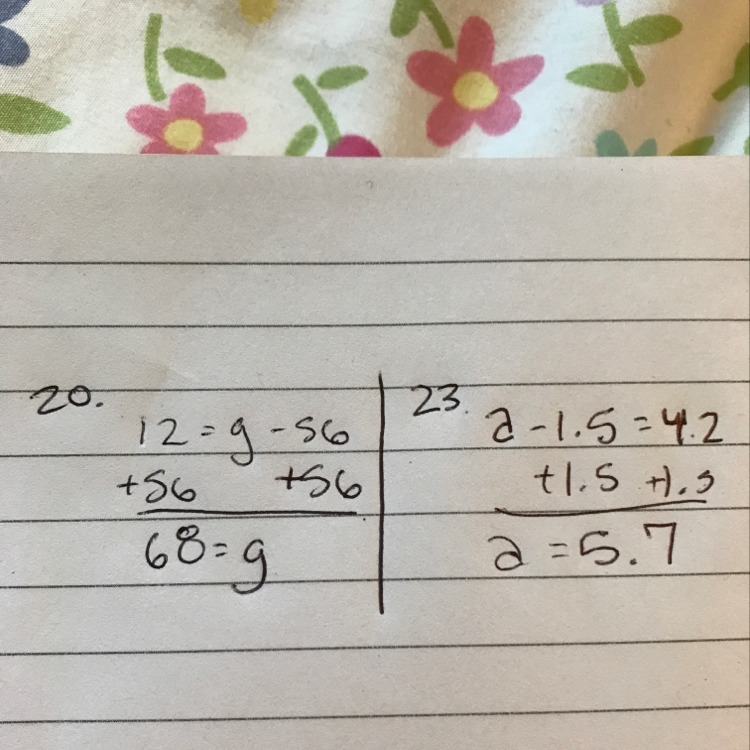 20.
12 = g - 56
+56 +56
68 = g
23.
a - 1.5 = 4.2
+1.5 +1.5
a = 5.7